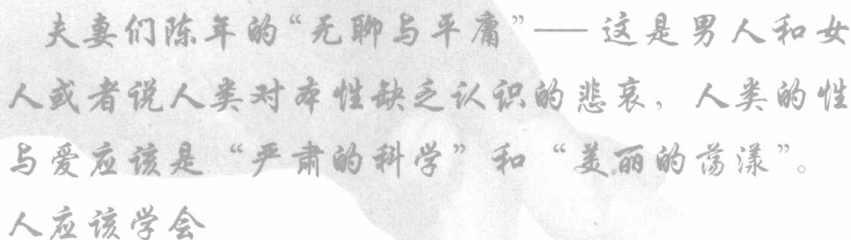 夫妻们陈年的“无聊与平庸”——这是男人和女
人或者说人类对本性缺乏认识的悲哀，人类的性
与爱应该是“严肃的科学”和“美丽的荡漾”。
人应该学会